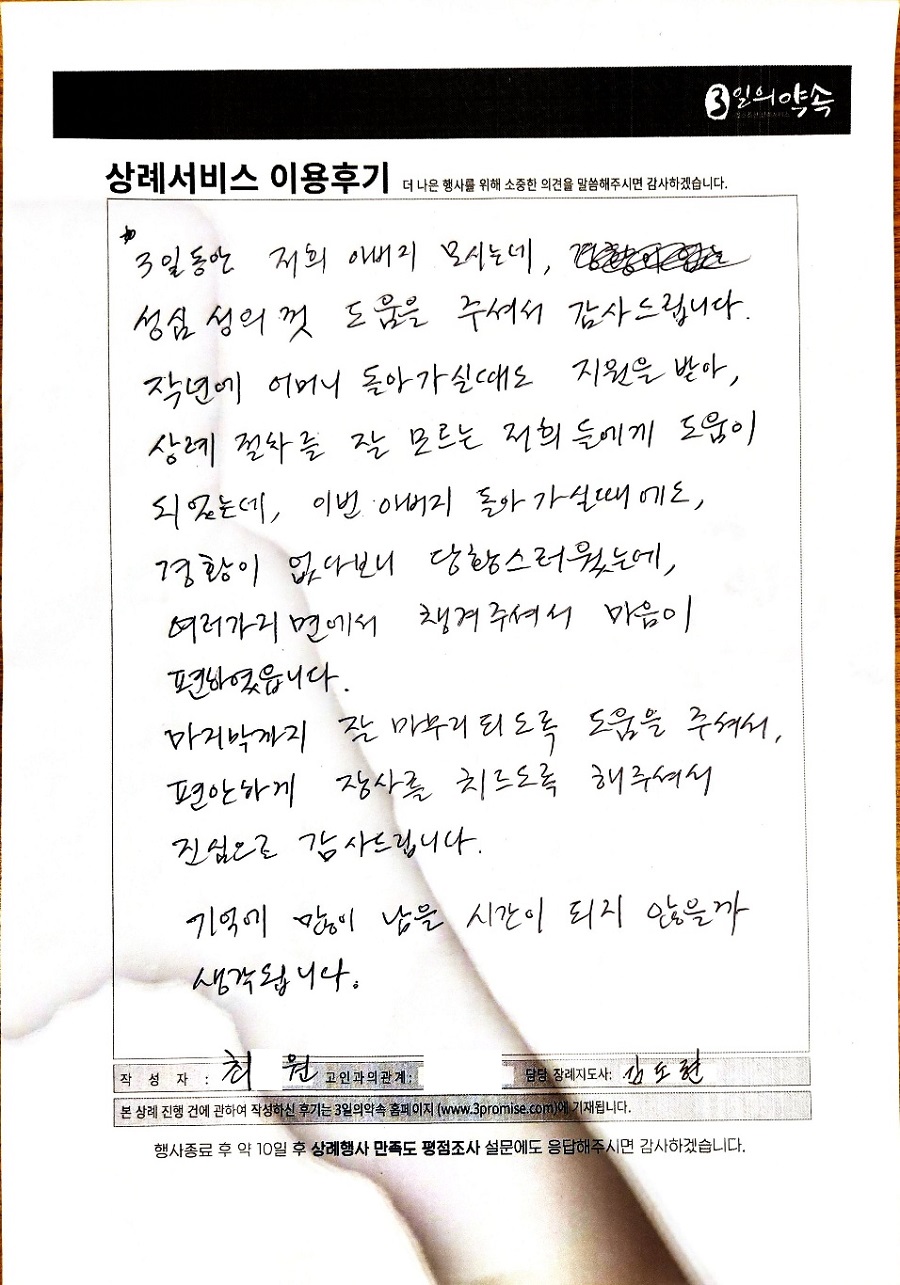 3일의약속
상례서비스 이용후기 더 나은 행사를 위해 소중한 의견을 말씀해주시면 감사하겠습니다.
3일동안 저희 아버지 모시는데,
성심 성의 껏 도움을 주셔서 감사드립니다.
작년에 어머니 돌아가실때도 지원을 받아,
상례 절차를 잘 모르는 저희들에게 도움이
되었는데, 이번 아버지 돌아가실때에도,
경황이 없다보니 당황스러웠는데,
여러가지 면에서 챙겨주셔서 마음이
편하였읍니다.
마지막까지 잘 마무리 되도록 도움을 주셔서,
편안하게 장사를 치르도록 해주셔서
진심으로 감사드립니다.
기억에 많이 남을 시간이 되지 않을까
생각됩니다.
작 성 자 : 최 원 고인과의관계: 담당 장례지도사: 김도현
본 상례 진행 건에 관하여 작성하신 후기는 3일의약속 홈페이지 (www.3promise.com)에 기재됩니다.
행사종료 후 약 10일 후 상례행사 만족도 평점조사 설문에도 응답해주시면 감사하겠습니다.